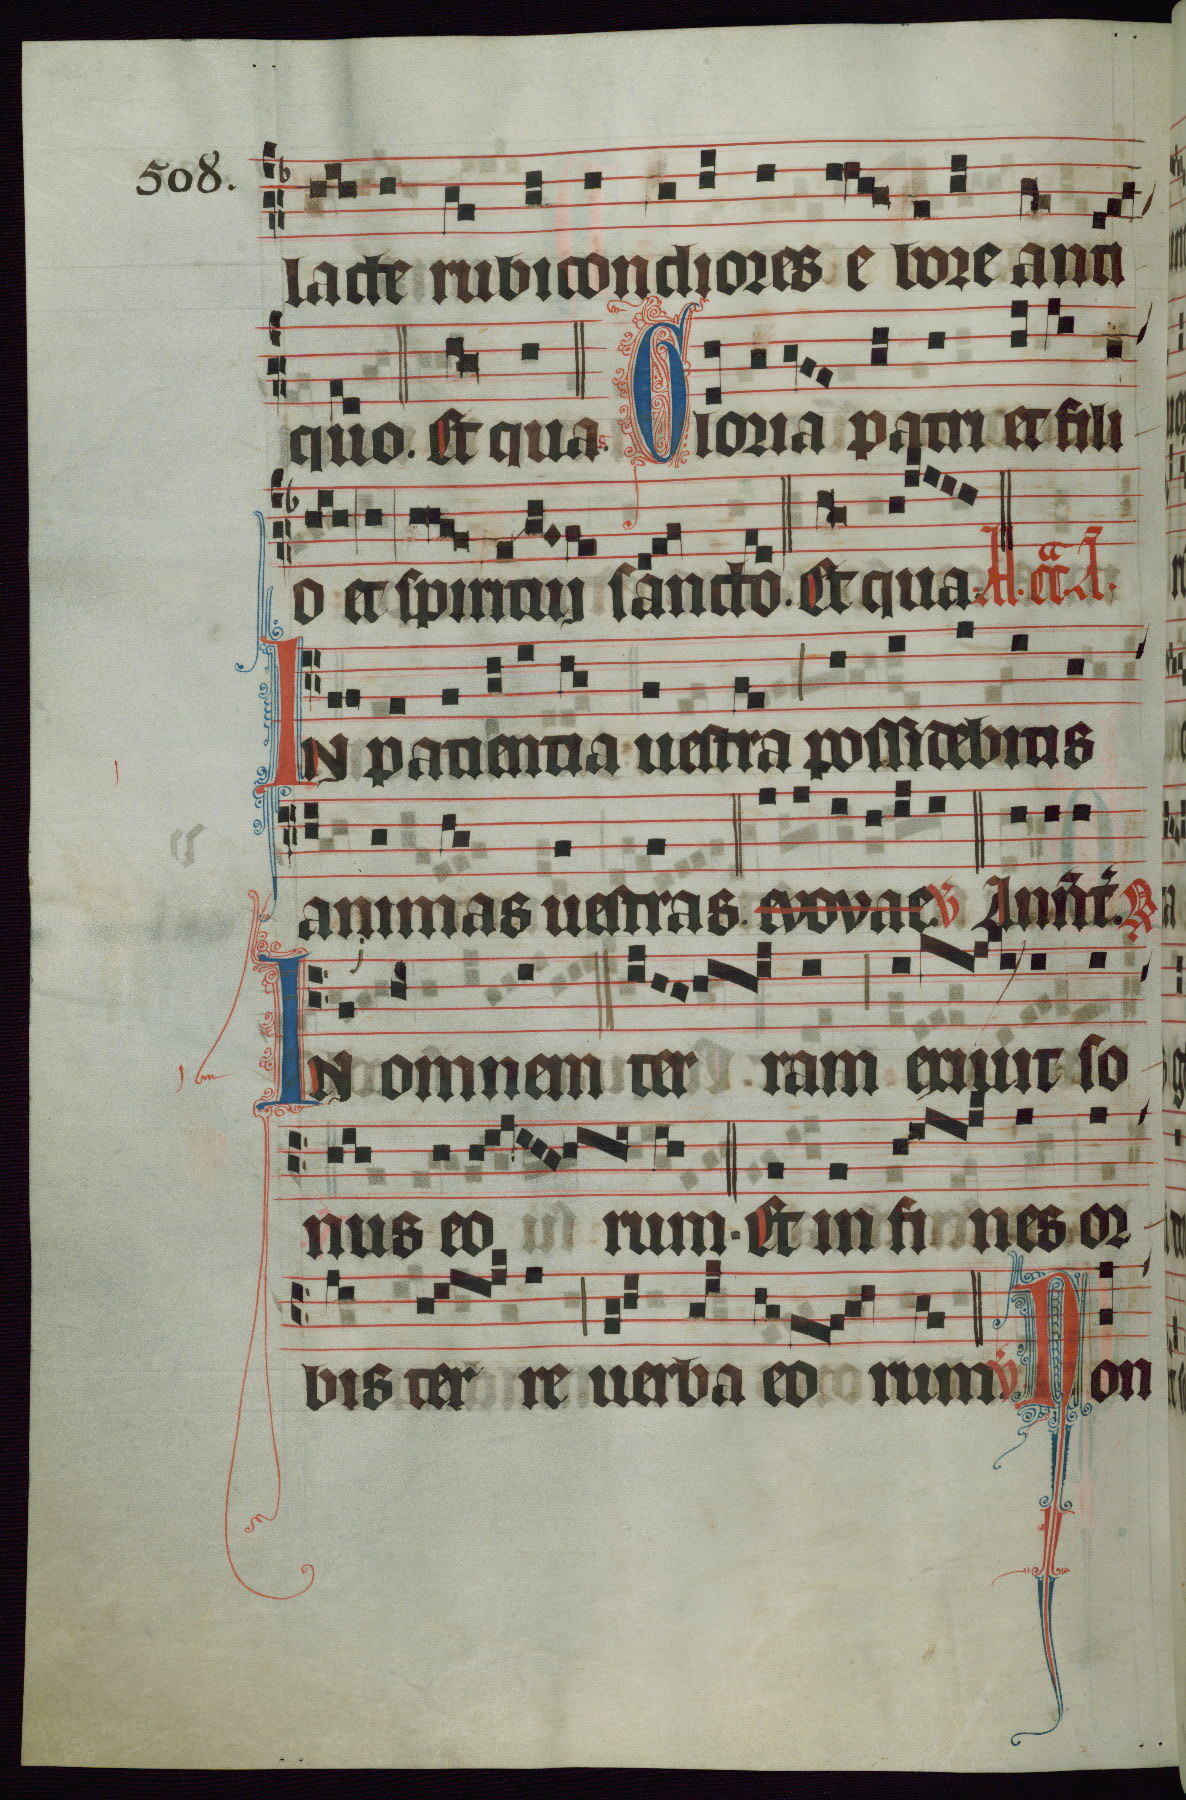 508.
lacte rubicondiores e bore anti
quo. Et qua. Gloria patri et fili
o et spiritui sancto. Et qua.
In patientia uestra possidebitis
animas uestras. evovae V Inuit. R
In omnem ter ram exiuit so
nus eo rum. Et in fi nes or
bis ter re uerba eo rum V Non